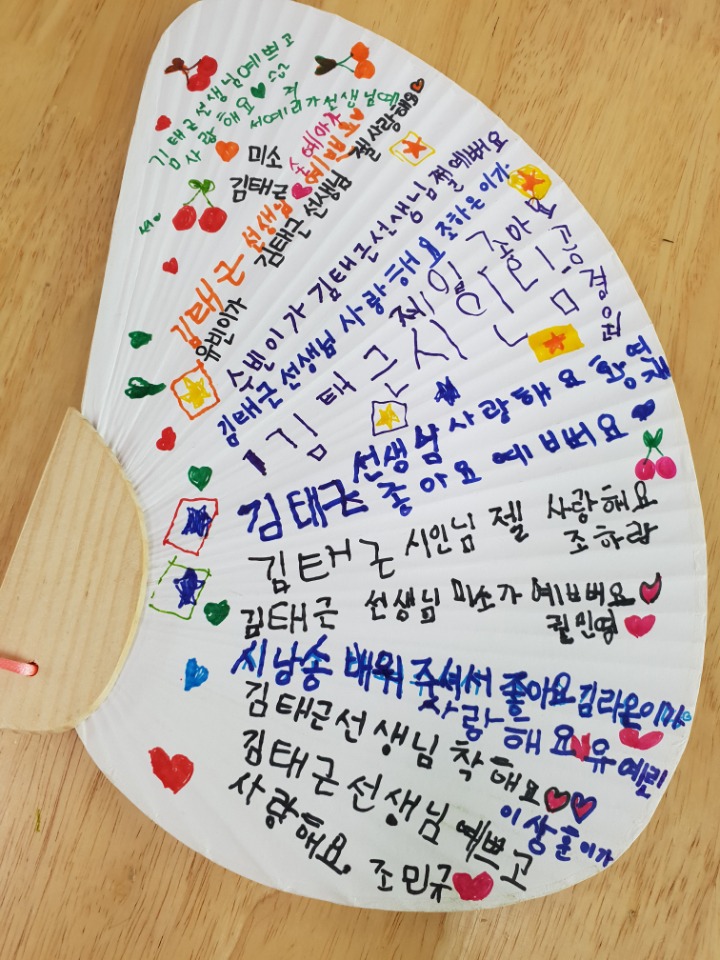 김태근선생님예쁘고
사랑해요
서예리가선생님예
미소
김태근
예쁜
젤 사랑해요
김태근 선생님
김태근 선생님
유빈이가
수빈이가 김태근선생님 젤 예뻐요
김태근선생님 사랑해요 조하은이가
김태근시인
제일 좋아요
선생님 사랑해요 황연재
김태근 좋아요 예뻐요
김태근 시인님 젤 사랑해요
조하람
김태근 선생님 미소가 예뻐요
권민영
시낭송 배워 주셔서 좋아요 김라온이가
사랑해요 유예린
김태근선생님 착해요
이상훈이가
김태근선생님 예쁘고
사랑해요. 조민규